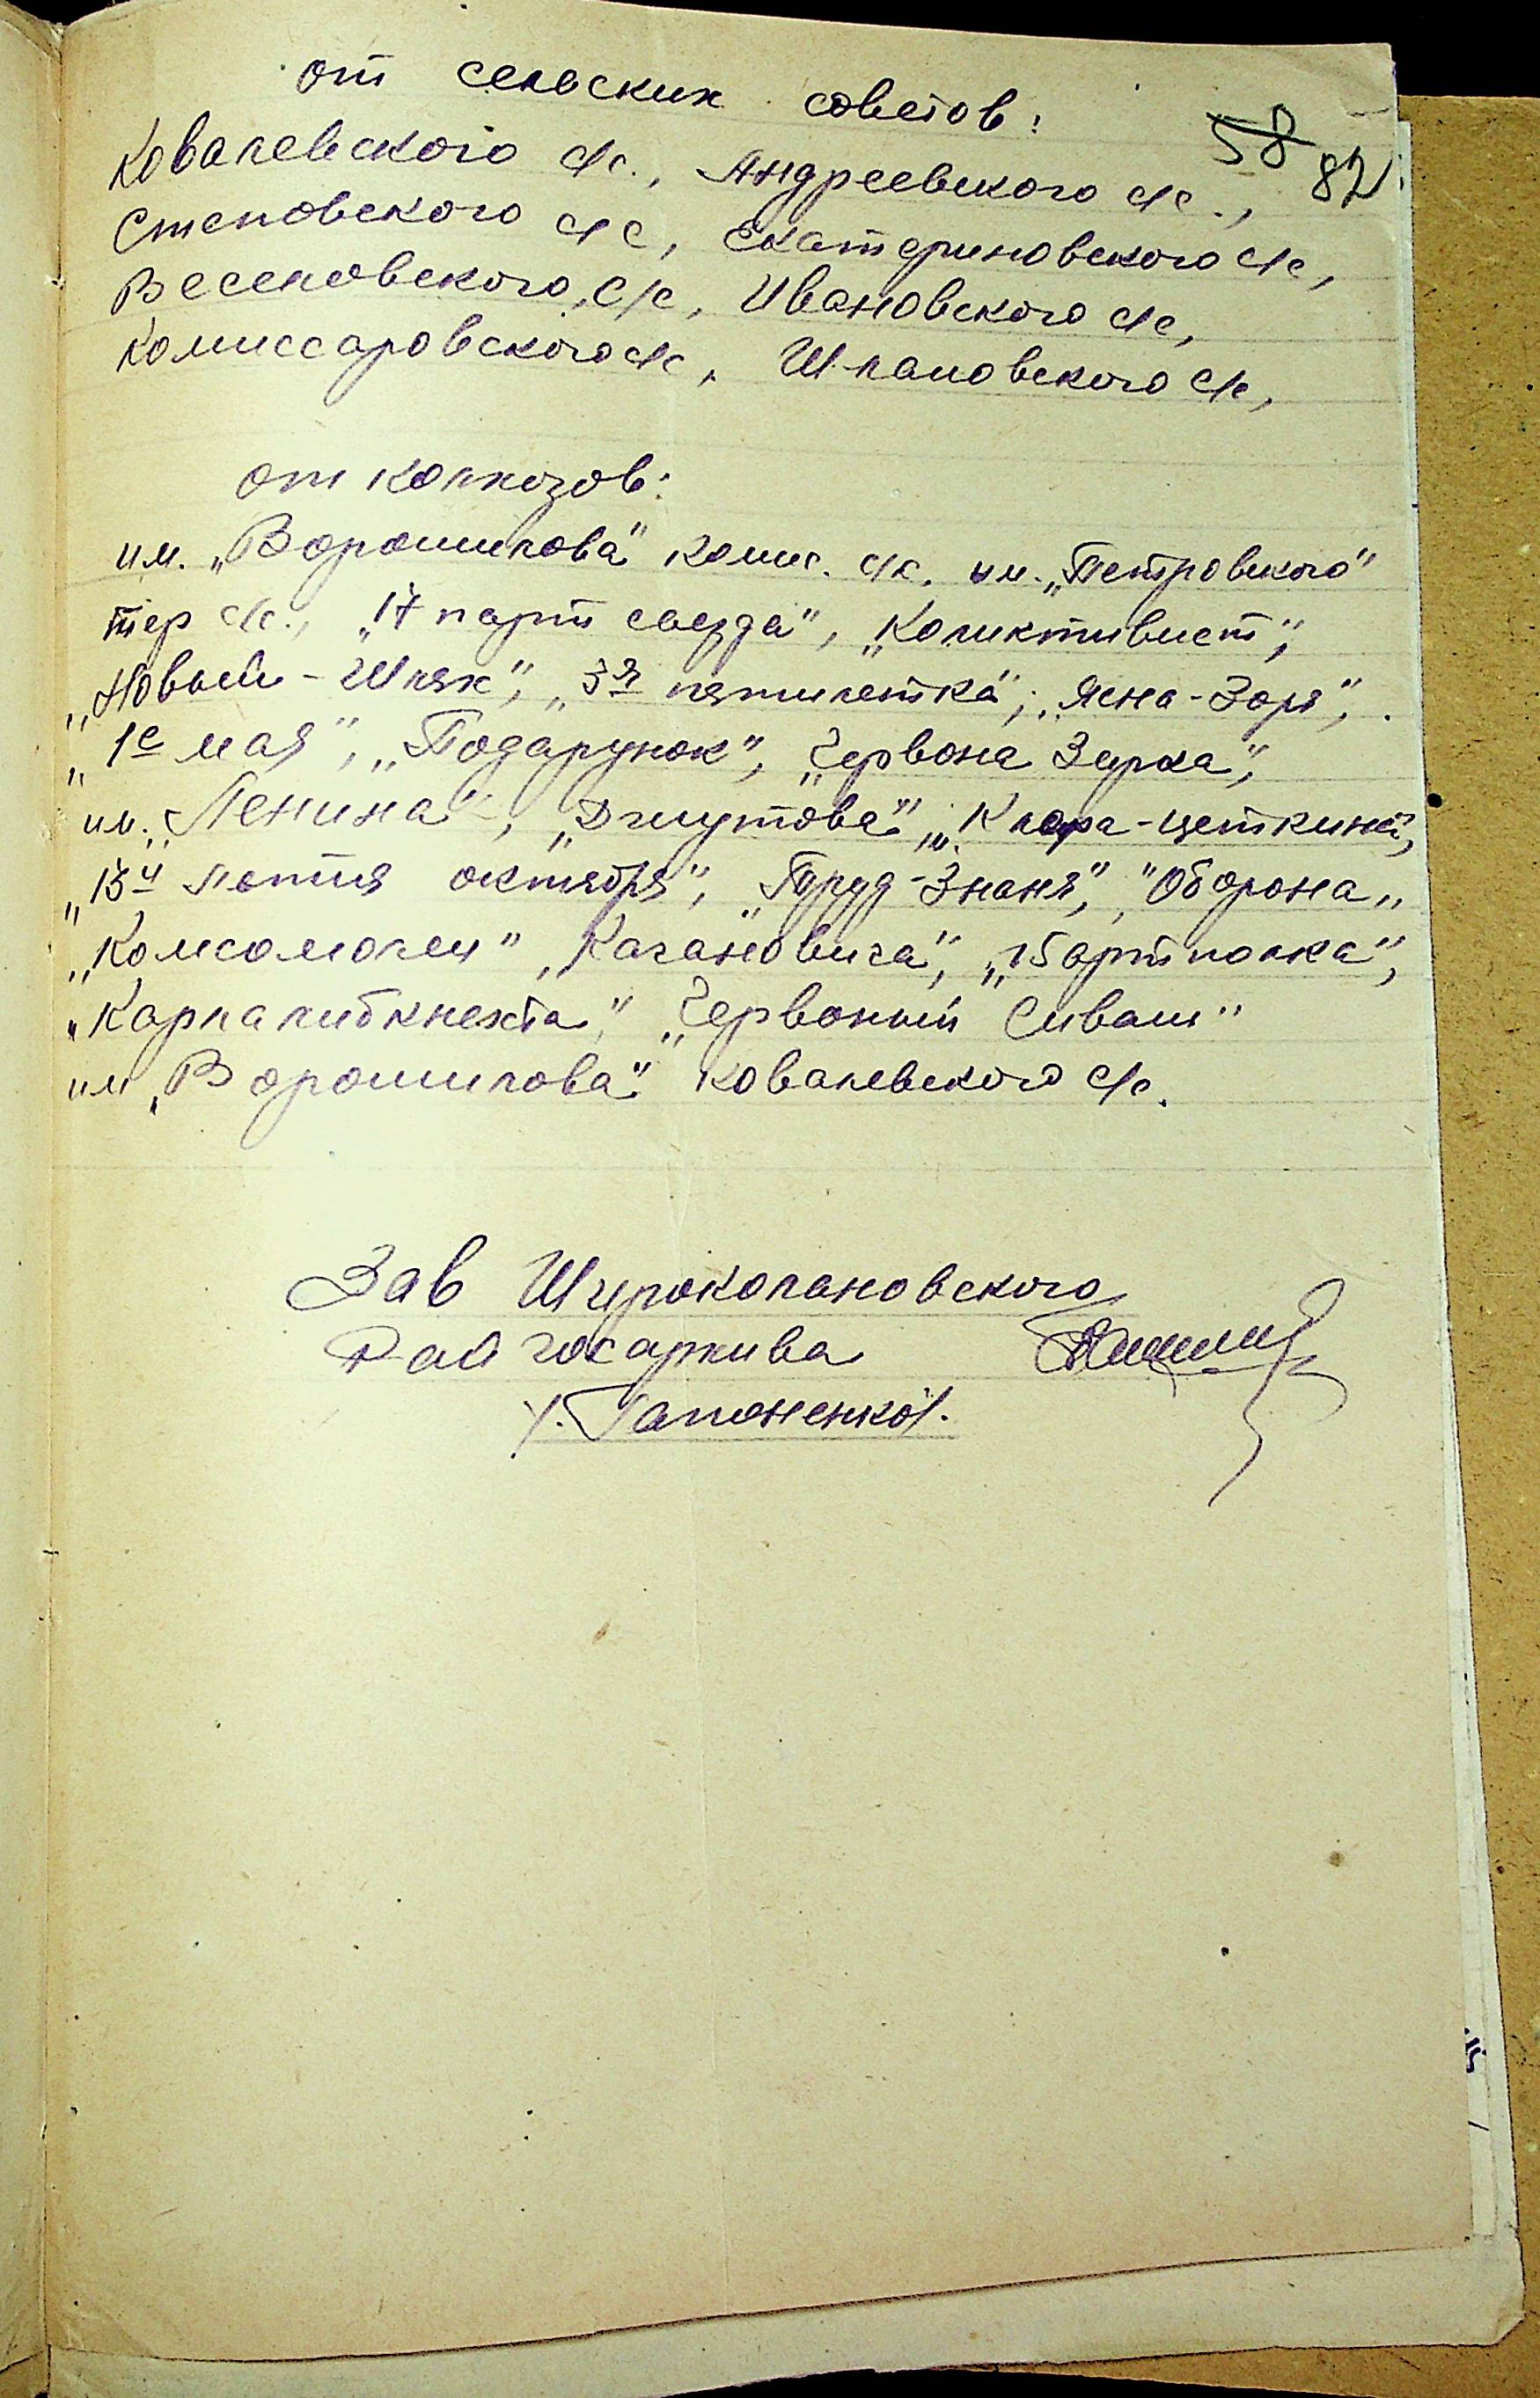 от сельских советов:
58 82
Ковалевского с/с., Андреевского с/с.,
Степовского с/с, Екатериновского с/с,
Веселовского, с/с, Ивановского с/с,
Комиссаровского с/с, Шлаковского с/с,
от колхозов:
им. „Ворошилова" комис. с/с, им. „Петровского"
тер с/с., „17 парт сьезда", „Коликтивист",
„Новый-Шлях", „3я пятилетка", „Ясна-Зоря",
„1е мая", „Подарунок", „Червона Зирка",
им. „Ленина", „Джутова" „Клара-цеткина",
„13ч летия октября", „Труд-Знаня", "Оборона„
„Комсомолец" „Кагановича", „15 артполка",
„Карла либкнехта", „Червоный Сиваш"
им „Ворошилова" Ковалевского с/с.
Зав Широколановского
Рай госархива
/. Гапоненко/.